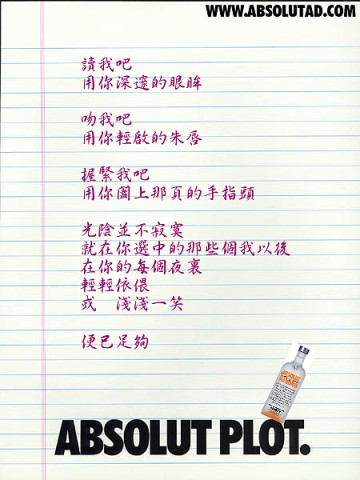 WWW.ABSOLUTAD.COM
讀我吧
用你深邃的眼眸
吻我吧
用你輕啟的朱唇
握緊我吧
用你闔上那頁的手指頭
光陰並不寂寞
就在你選中的那些個我以後
在你的每個夜裏
輕輕依偎
或 淺淺一笑
便已足夠
ABSOLUT PLOT.